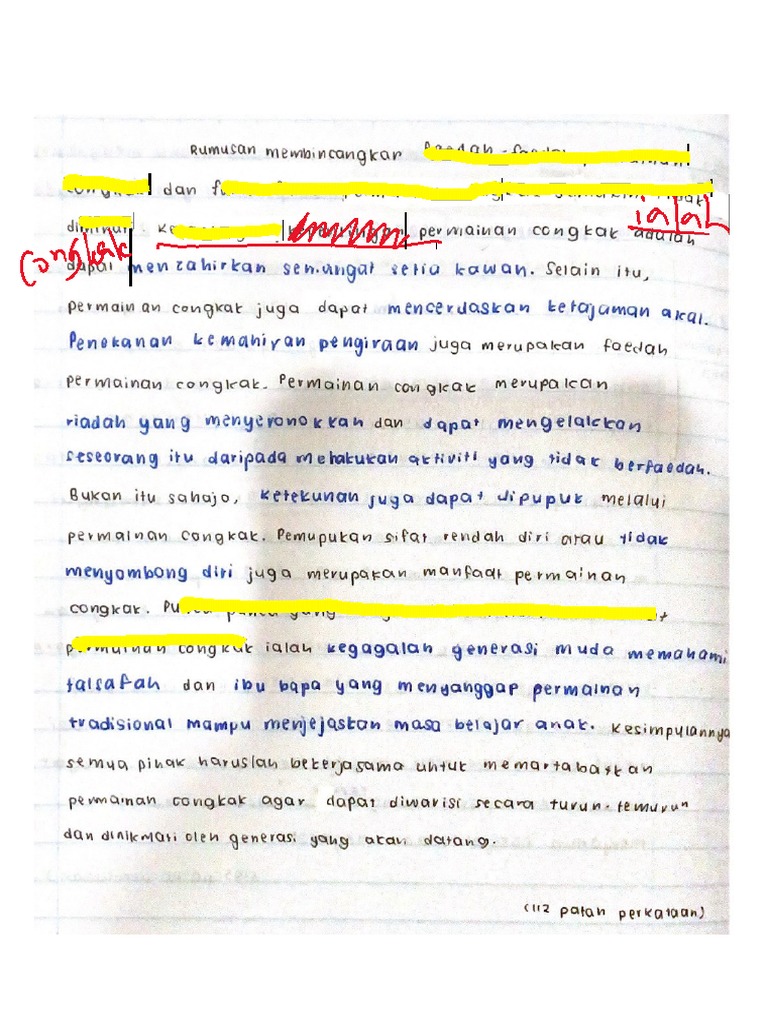 Rumusan membincangkar
dan
ialah
permainan congkak adalah
Congkak
dapat menzahirkan semangat setia kawan. Selain itu,
permainan congkak juga dapat mencerdaskan ketajaman akal.
Penekanan kemahiran pengiraan juga merupakan faedah
permainan congkak. Permainan congkak merupakan
riadah yang menyeronokkan dan dapat mengelakkan
seseorang itu daripada melakukan aktiviti yang tidak berfaedah.
Bukan itu sahaja, ketekunan juga dapat dipupuk melalui
permainan congkak. Pemupukan sifat rendah diri atau tidak
menyombong diri juga merupakan manfaat permainan
congkak.
ialah kegagalan generasi muda memahami
falsafah dan ibu bapa yang menganggap permainan
tradisional mampu menjejaskan masa belajar anak. Kesimpulannya
semua pihak haruslah bekerjasama untuk memartabatkan
permainan congkak agar dapat diwarisi secara turun-temurun
dan dinikmati oleh generasi yang akan datang.
(112 patah perkataan)